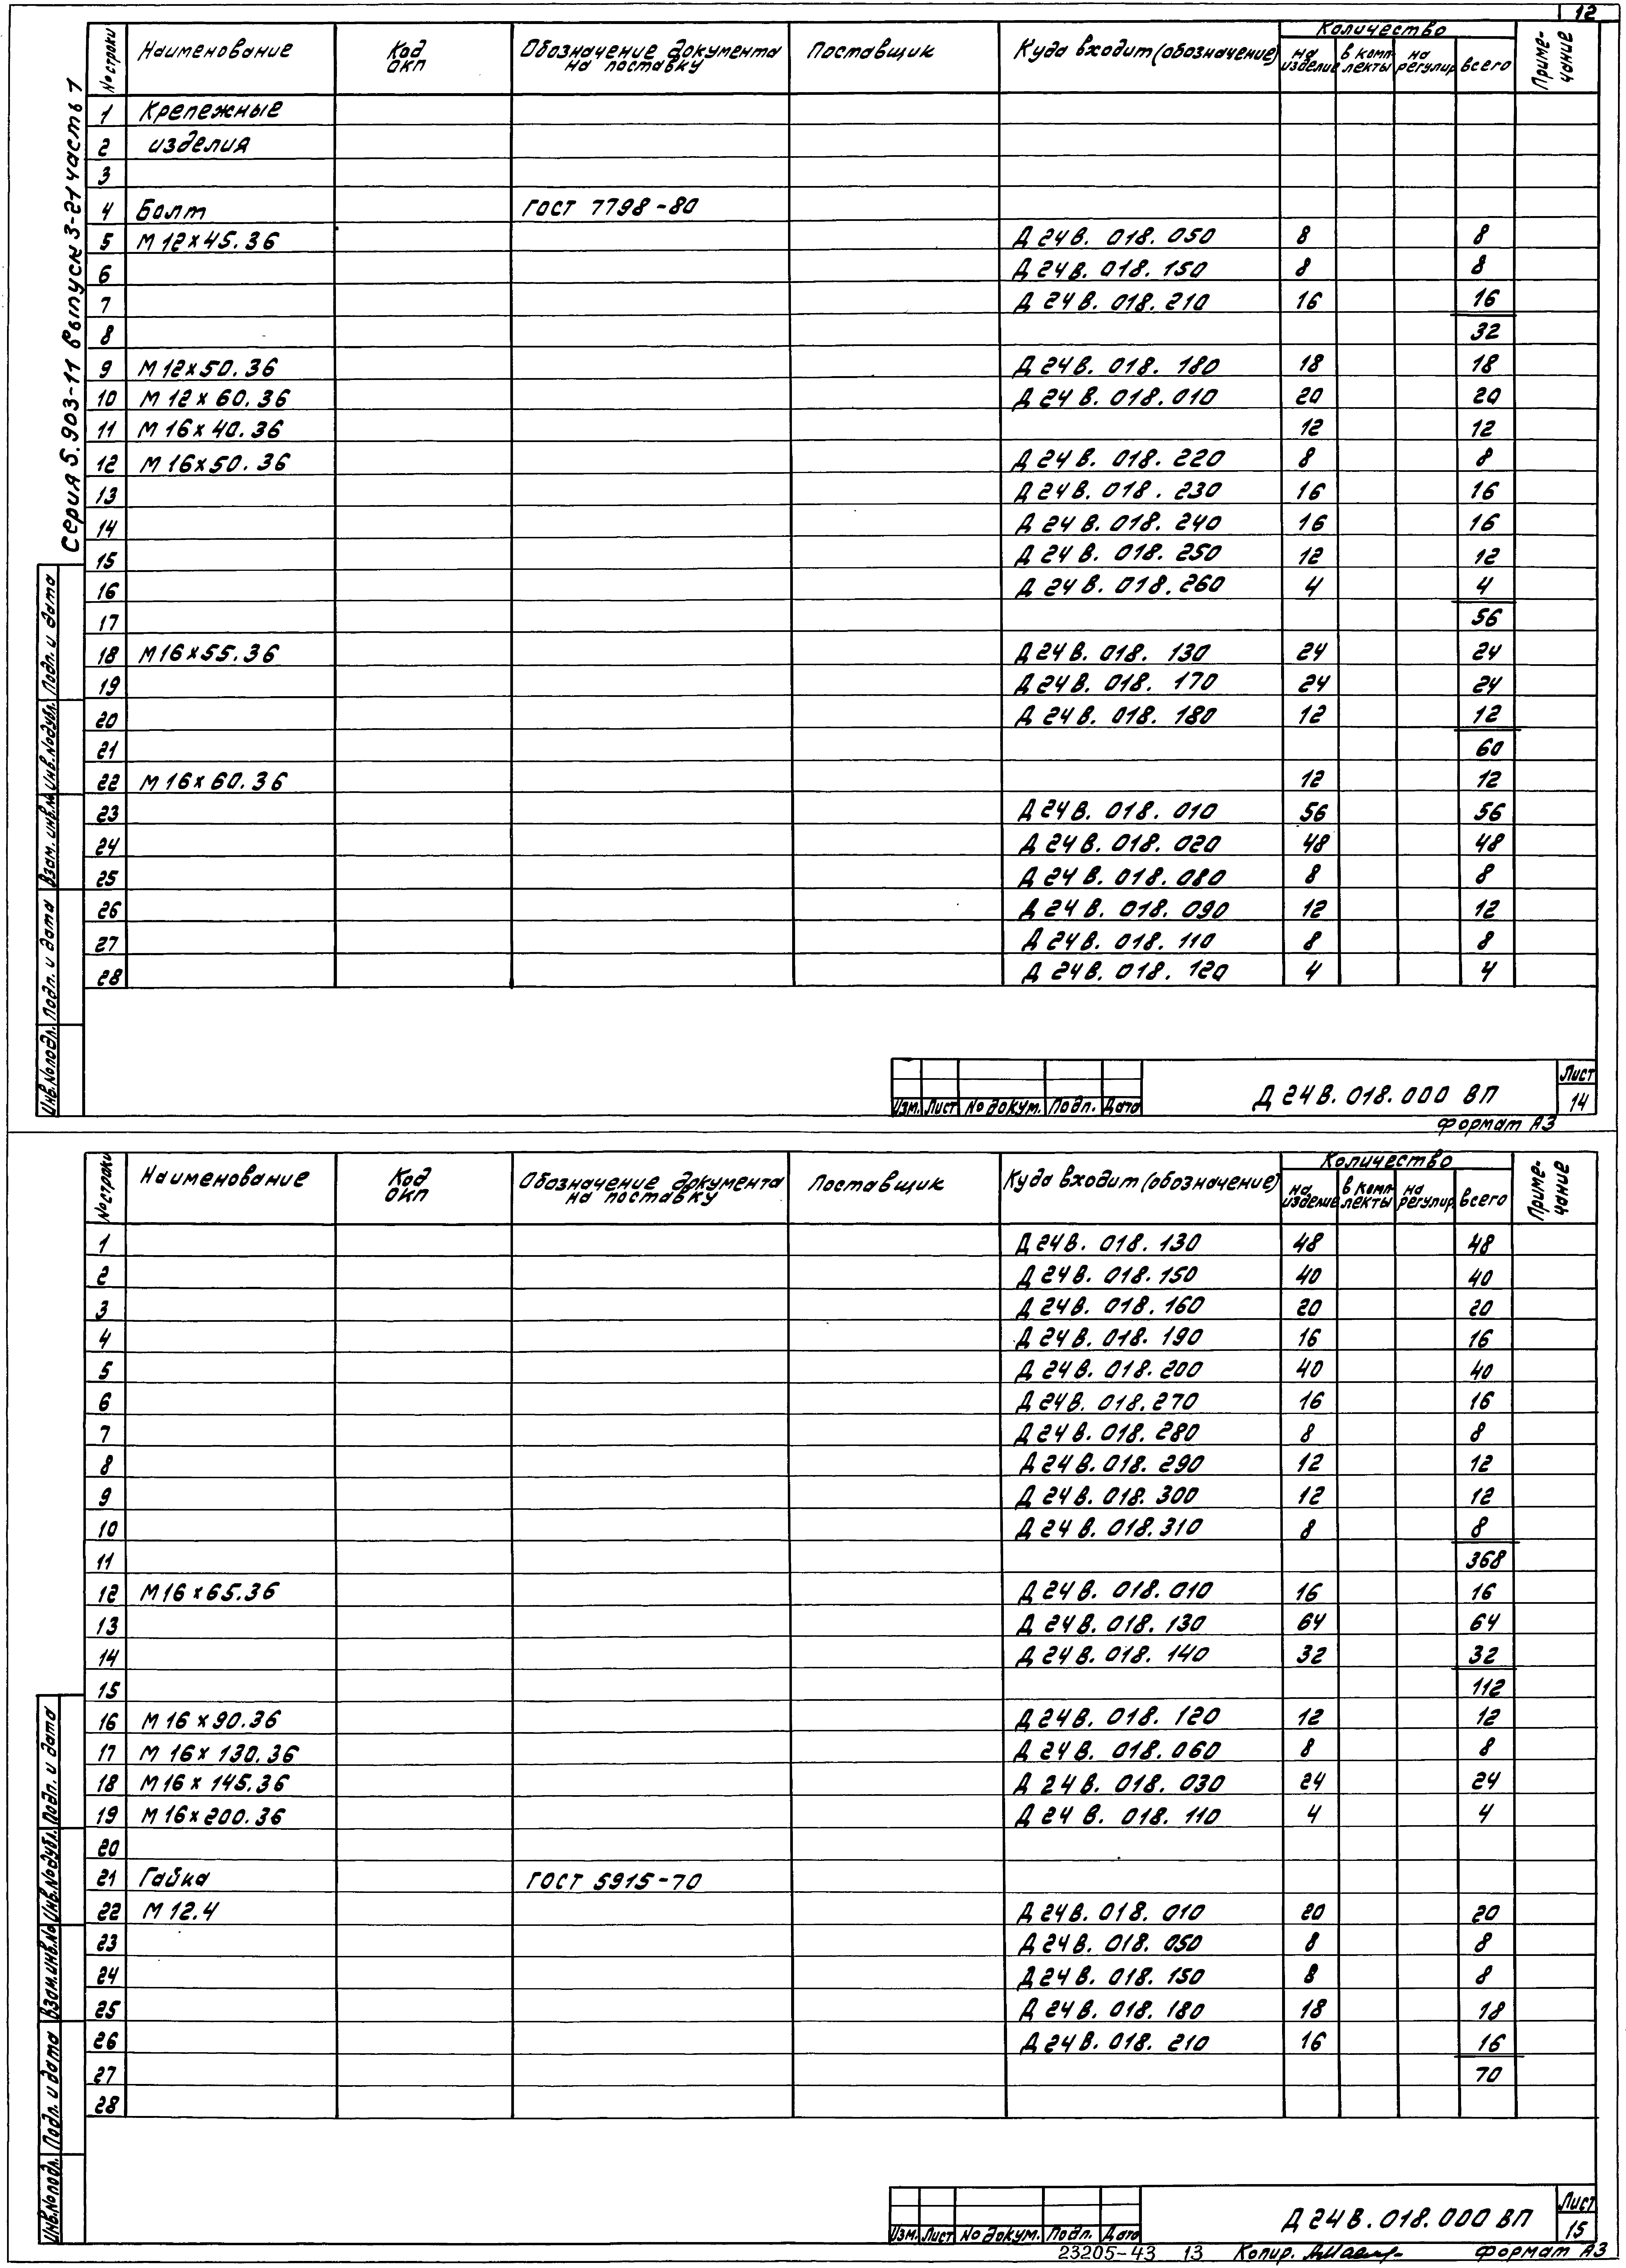 12
Серия 5.903-11 выпуск 3-21 часть 1
№ строки Наименование Код ОКП Обозначение документа на поставку Поставщик Куда входит (обозначение) Количество на изделие в комплекты на регулир. всего Примечание
1 Крепежные
2 изделия
3
4 Болт ГОСТ 7798-80
5 М12х45.36 Д24В.018.050 8 8
6 Д24В.018.150 8 8
7 Д24В.018.210 16 16
8 32
9 М12х50.36 Д24В.018.180 18 18
10 М12х60.36 Д24В.018.010 20 20
11 М16х40.36 12 12
12 М16х50.36 Д24В.018.220 8 8
13 Д24В.018.230 16 16
14 Д24В.018.240 16 16
15 Д24В.018.250 12 12
16 Д24В.018.260 4 4
17 56
18 М16х55.36 Д24В.018.130 24 24
19 Д24В.018.170 24 24
20 Д24В.018.180 12 12
21 60
22 М16х60.36 12 12
23 Д24В.018.010 56 56
24 Д24В.018.020 48 48
25 Д24В.018.080 8 8
26 Д24В.018.090 12 12
27 Д24В.018.110 8 8
28 Д24В.018.120 4 4
Инв.№подл. Подп. и дата Взам.инв.№ Инв.№дубл. Подп. и дата
Изм. Лист № докум. Подп. Дата
Д24В.018.000 ВП
Лист
14
Формат А3
№ строки Наименование Код ОКП Обозначение документа на поставку Поставщик Куда входит (обозначение) Количество на изделие в комплекты на регулир. всего Примечание
1 Д24В.018.130 48 48
2 Д24В.018.150 40 40
3 Д24В.018.160 20 20
4 Д24В.018.190 16 16
5 Д24В.018.200 40 40
6 Д24В.018.270 16 16
7 Д24В.018.280 8 8
8 Д24В.018.290 12 12
9 Д24В.018.300 12 12
10 Д24В.018.310 8 8
11 368
12 М16х65.36 Д24В.018.010 16 16
13 Д24В.018.130 64 64
14 Д24В.018.140 32 32
15 112
16 М16х90.36 Д24В.018.120 12 12
17 М16х130.36 Д24В.018.060 8 8
18 М16х145.36 Д24В.018.030 24 24
19 М16х200.36 Д24В.018.110 4 4
20
21 Гайка ГОСТ 5915-70
22 М12.4 Д24В.018.010 20 20
23 Д24В.018.050 8 8
24 Д24В.018.150 8 8
25 Д24В.018.180 18 18
26 Д24В.018.210 16 16
27 70
28
Инв.№подл. Подп. и дата Взам.инв.№ Инв.№дубл. Подп. и дата
Изм. Лист № докум. Подп. Дата
Д24В.018.000 ВП
Лист
15
23205-43 13 Копир. Формат А3